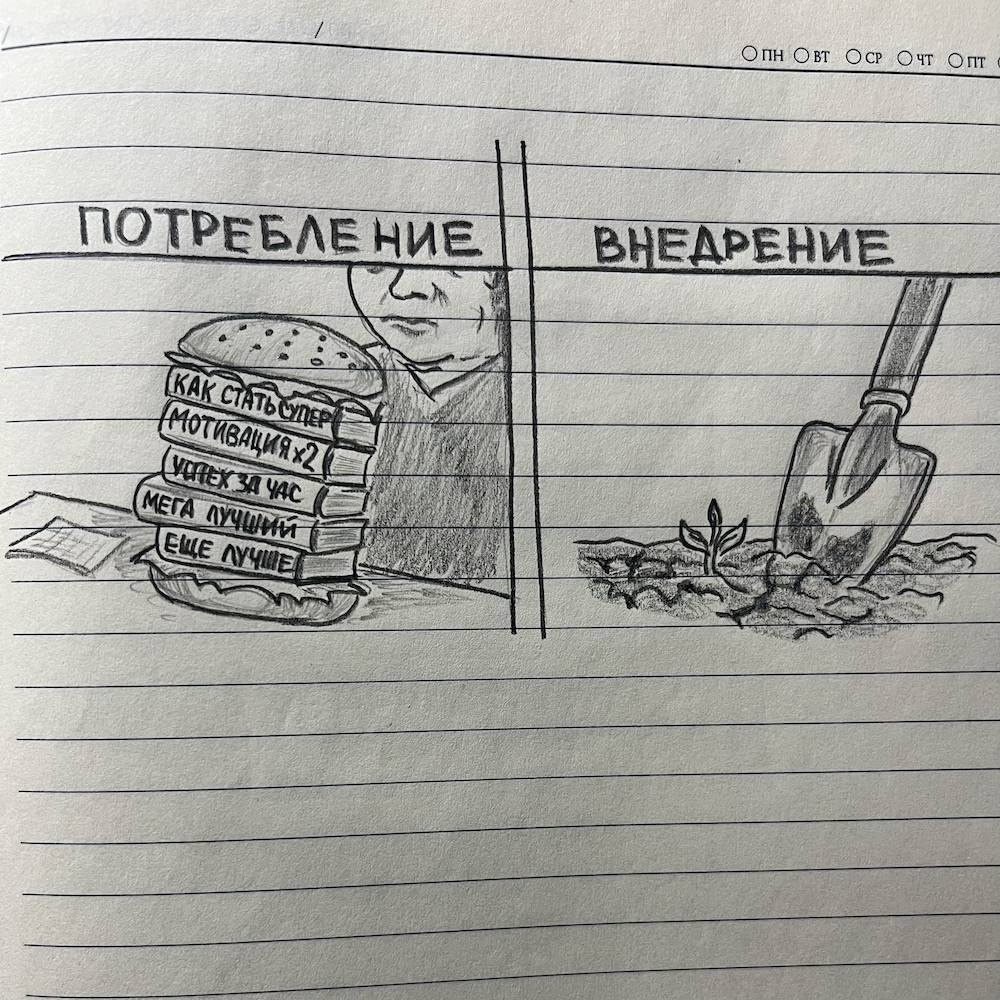 ПН ВТ СР ЧТ ПТ
ПОТРЕБЛЕНИЕ
ВНЕДРЕНИЕ
КАК СТАТЬ СУПЕР
МОТИВАЦИЯ x2
УСПЕХ ЗА ЧАС
МЕГА ЛУЧШИЙ
ЕЩЕ ЛУЧШЕ